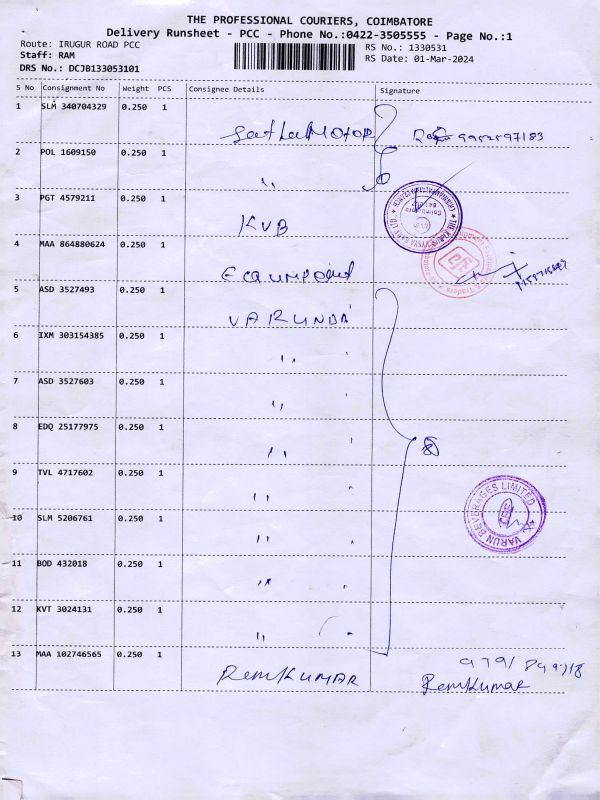 THE PROFESSIONAL COURIERS, COIMBATORE
Delivery Runsheet - PCC - Phone No.:0422-3505555 - Page No.:1
Route: IRUGUR ROAD PCC
RS No.: 1330531
Staff: RAM
RS Date: 01-Mar-2024
DRS No.: DCJB133053101
S No Consignment No Weight PCS Consignee Details Signature
1 SLM 340704329 0.250 1
2 POL 1609150 0.250 1
"
3 PGT 4579211 0.250 1
KVB
4 MAA 864880624 0.250 1
5 ASD 3527493 0.250 1
6 IXM 303154385 0.250 1
" '
7 ASD 3527603 0.250 1
" '
8 EDQ 25177975 0.250 1
" '
9 TVL 4717602 0.250 1
" "
VARUN BEVERAGES LIMITED
10 SLM 5206761 0.250 1
" "
11 BOD 432018 0.250 1
" "
12 KVT 3024131 0.250 1
" "
13 MAA 102746565 0.250 1
RemKUMAR
RemKumar